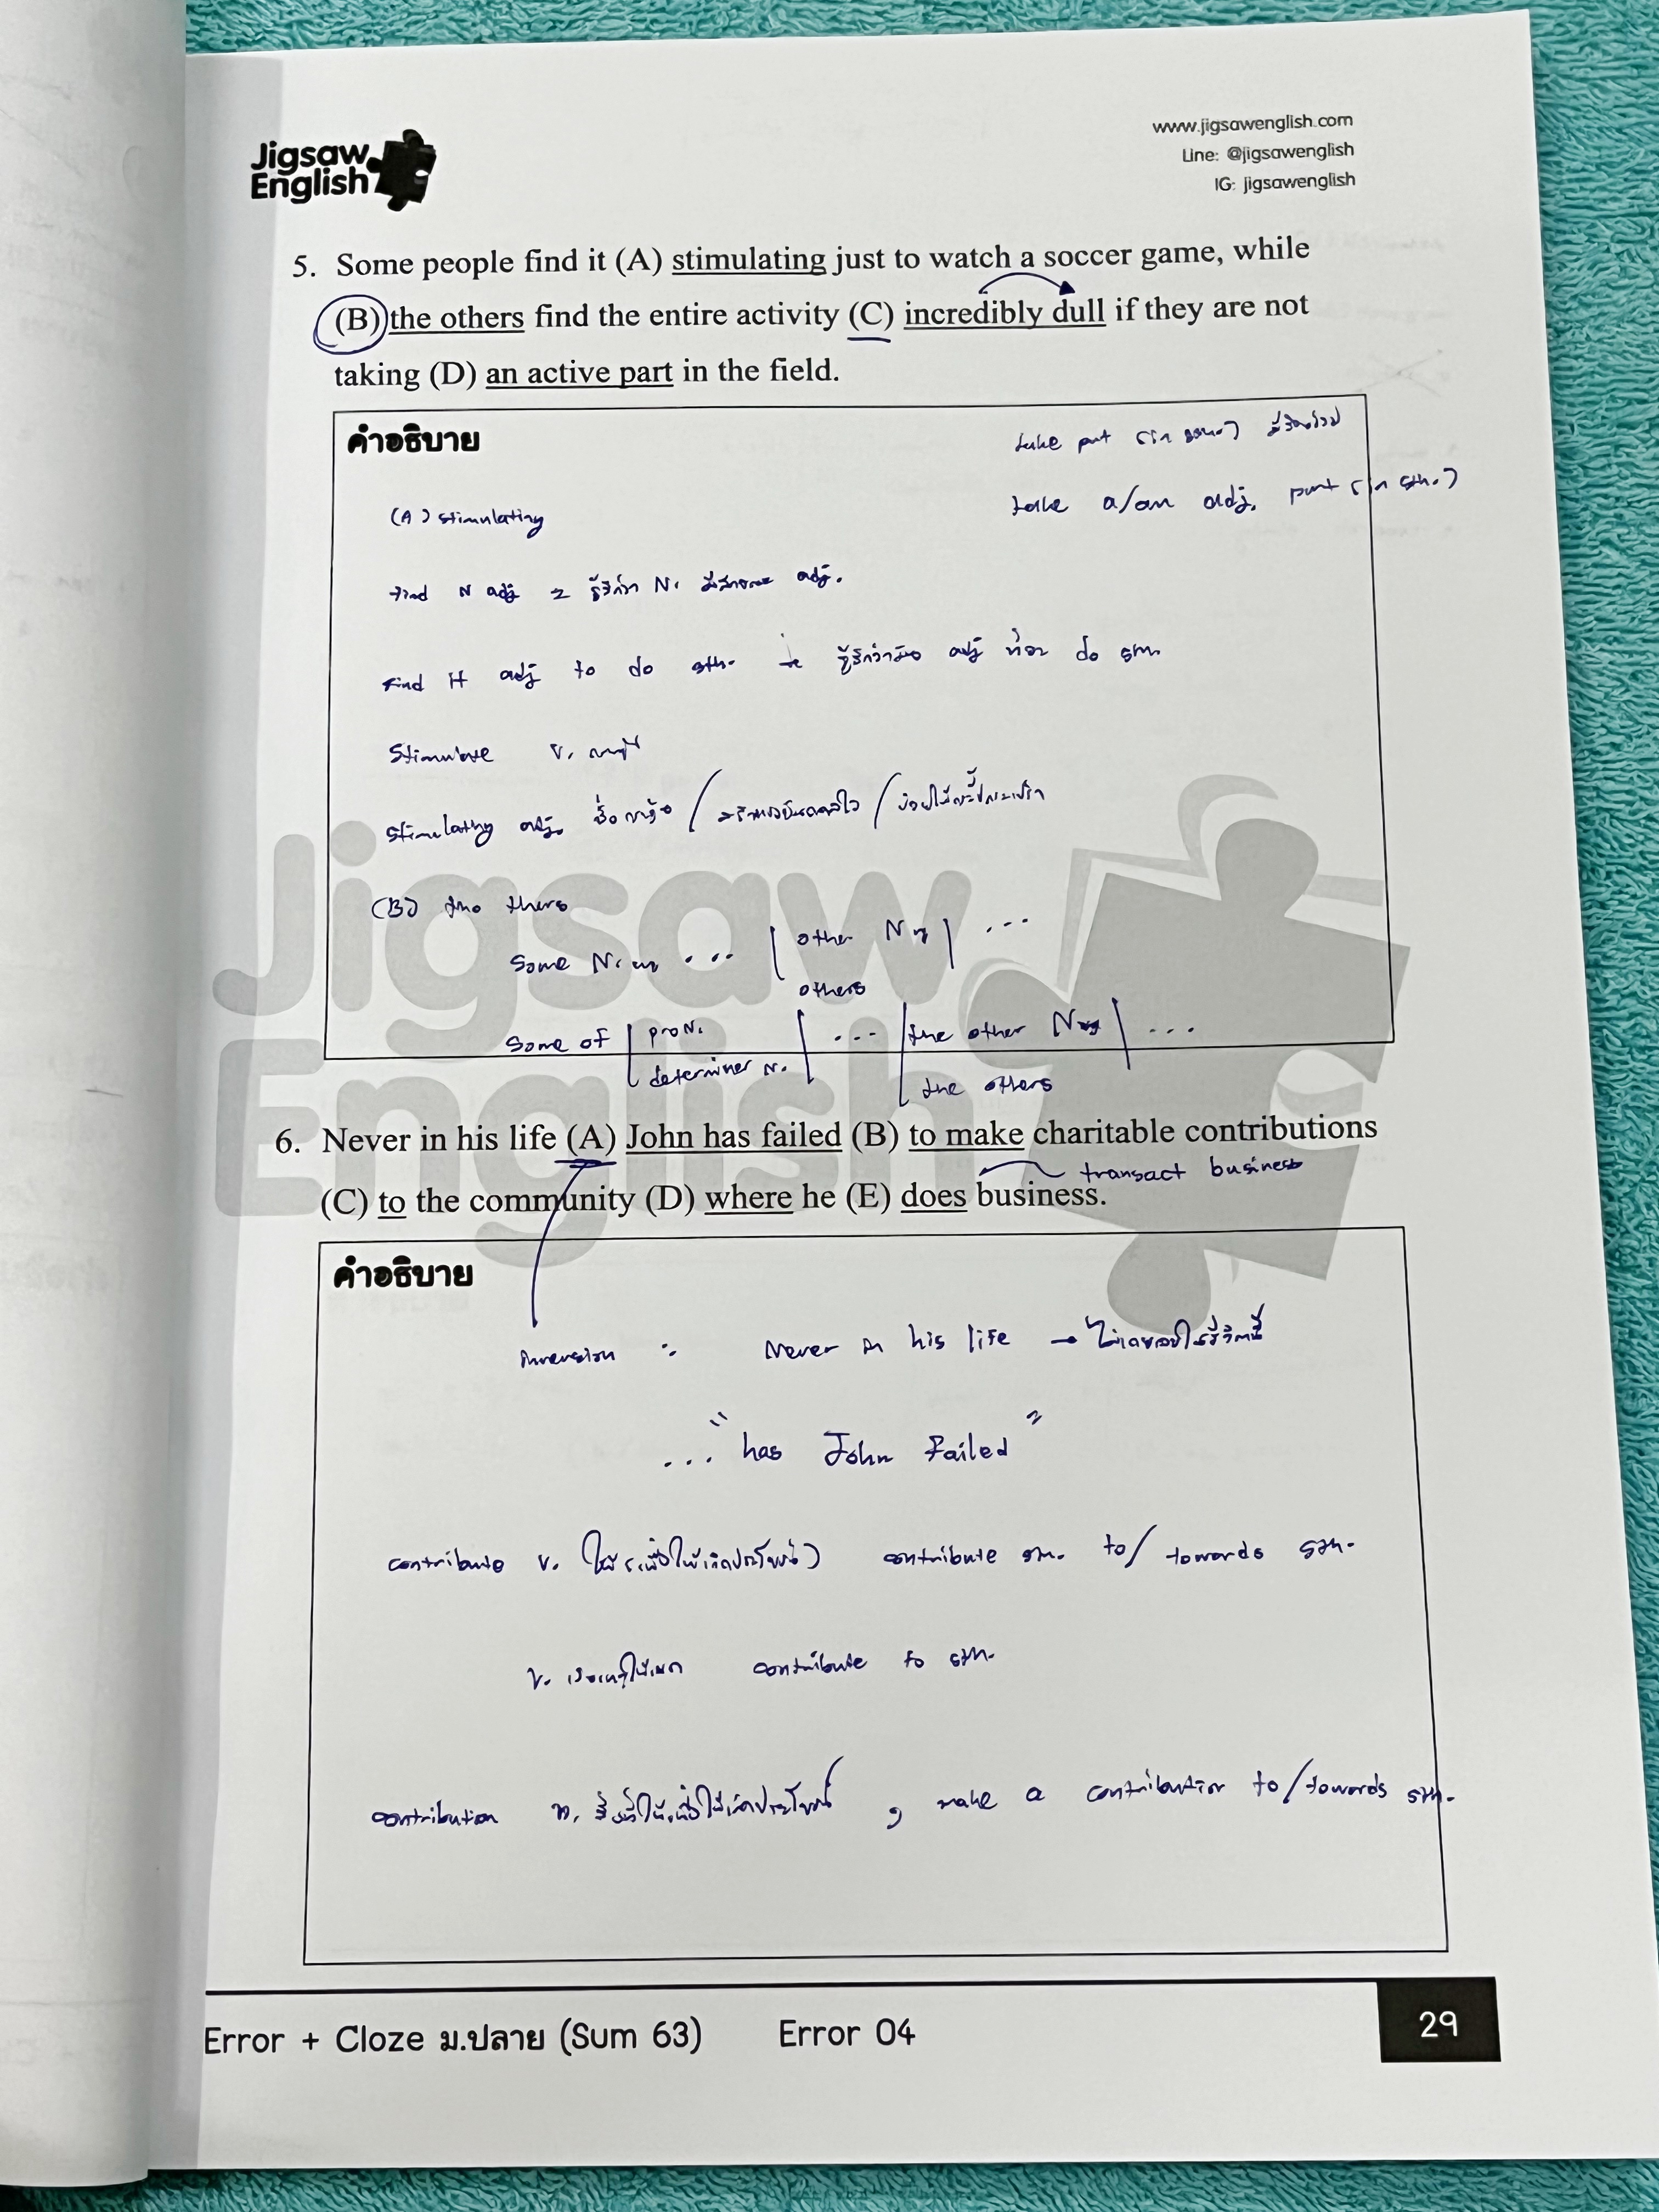 Jigsaw
English
www.jigsawenglish.com
Line: @jigsawenglish
IG: jigsawenglish
5. Some people find it (A) stimulating just to watch a soccer game, while
(B) the others find the entire activity (C) incredibly dull if they are not
taking (D) an active part in the field.
คำอธิบาย
take part (in sth.) มีส่วนร่วม
take a/an adj. part (in sth.)
(A) stimulating
find N adj = รู้สึกว่า N. มีลักษณะ adj.
find it adj to do sth. → รู้สึกว่ามัน adj ที่จะ do sth.
stimulate v.
stimulating adj.
(B) the others
some N. ... other N ...
others
some of pro N. ... the other N ...
determiner N.
the others
6. Never in his life (A) John has failed (B) to make charitable contributions
transact business
(C) to the community (D) where he (E) does business.
คำอธิบาย
inversion : Never in his life → ไม่เคยเลยในชีวิตนี้
... "has John failed"
contribute v. ให้ (เพื่อให้เกิดประโยชน์) contribute sth. to/towards sth.
v. contribute to sth.
contribution n. สิ่งที่ให้เพื่อให้เกิดประโยชน์ , make a contribution to/towards sth.
Error + Cloze ม.ปลาย (Sum 63) Error 04
29
Jigsaw
English